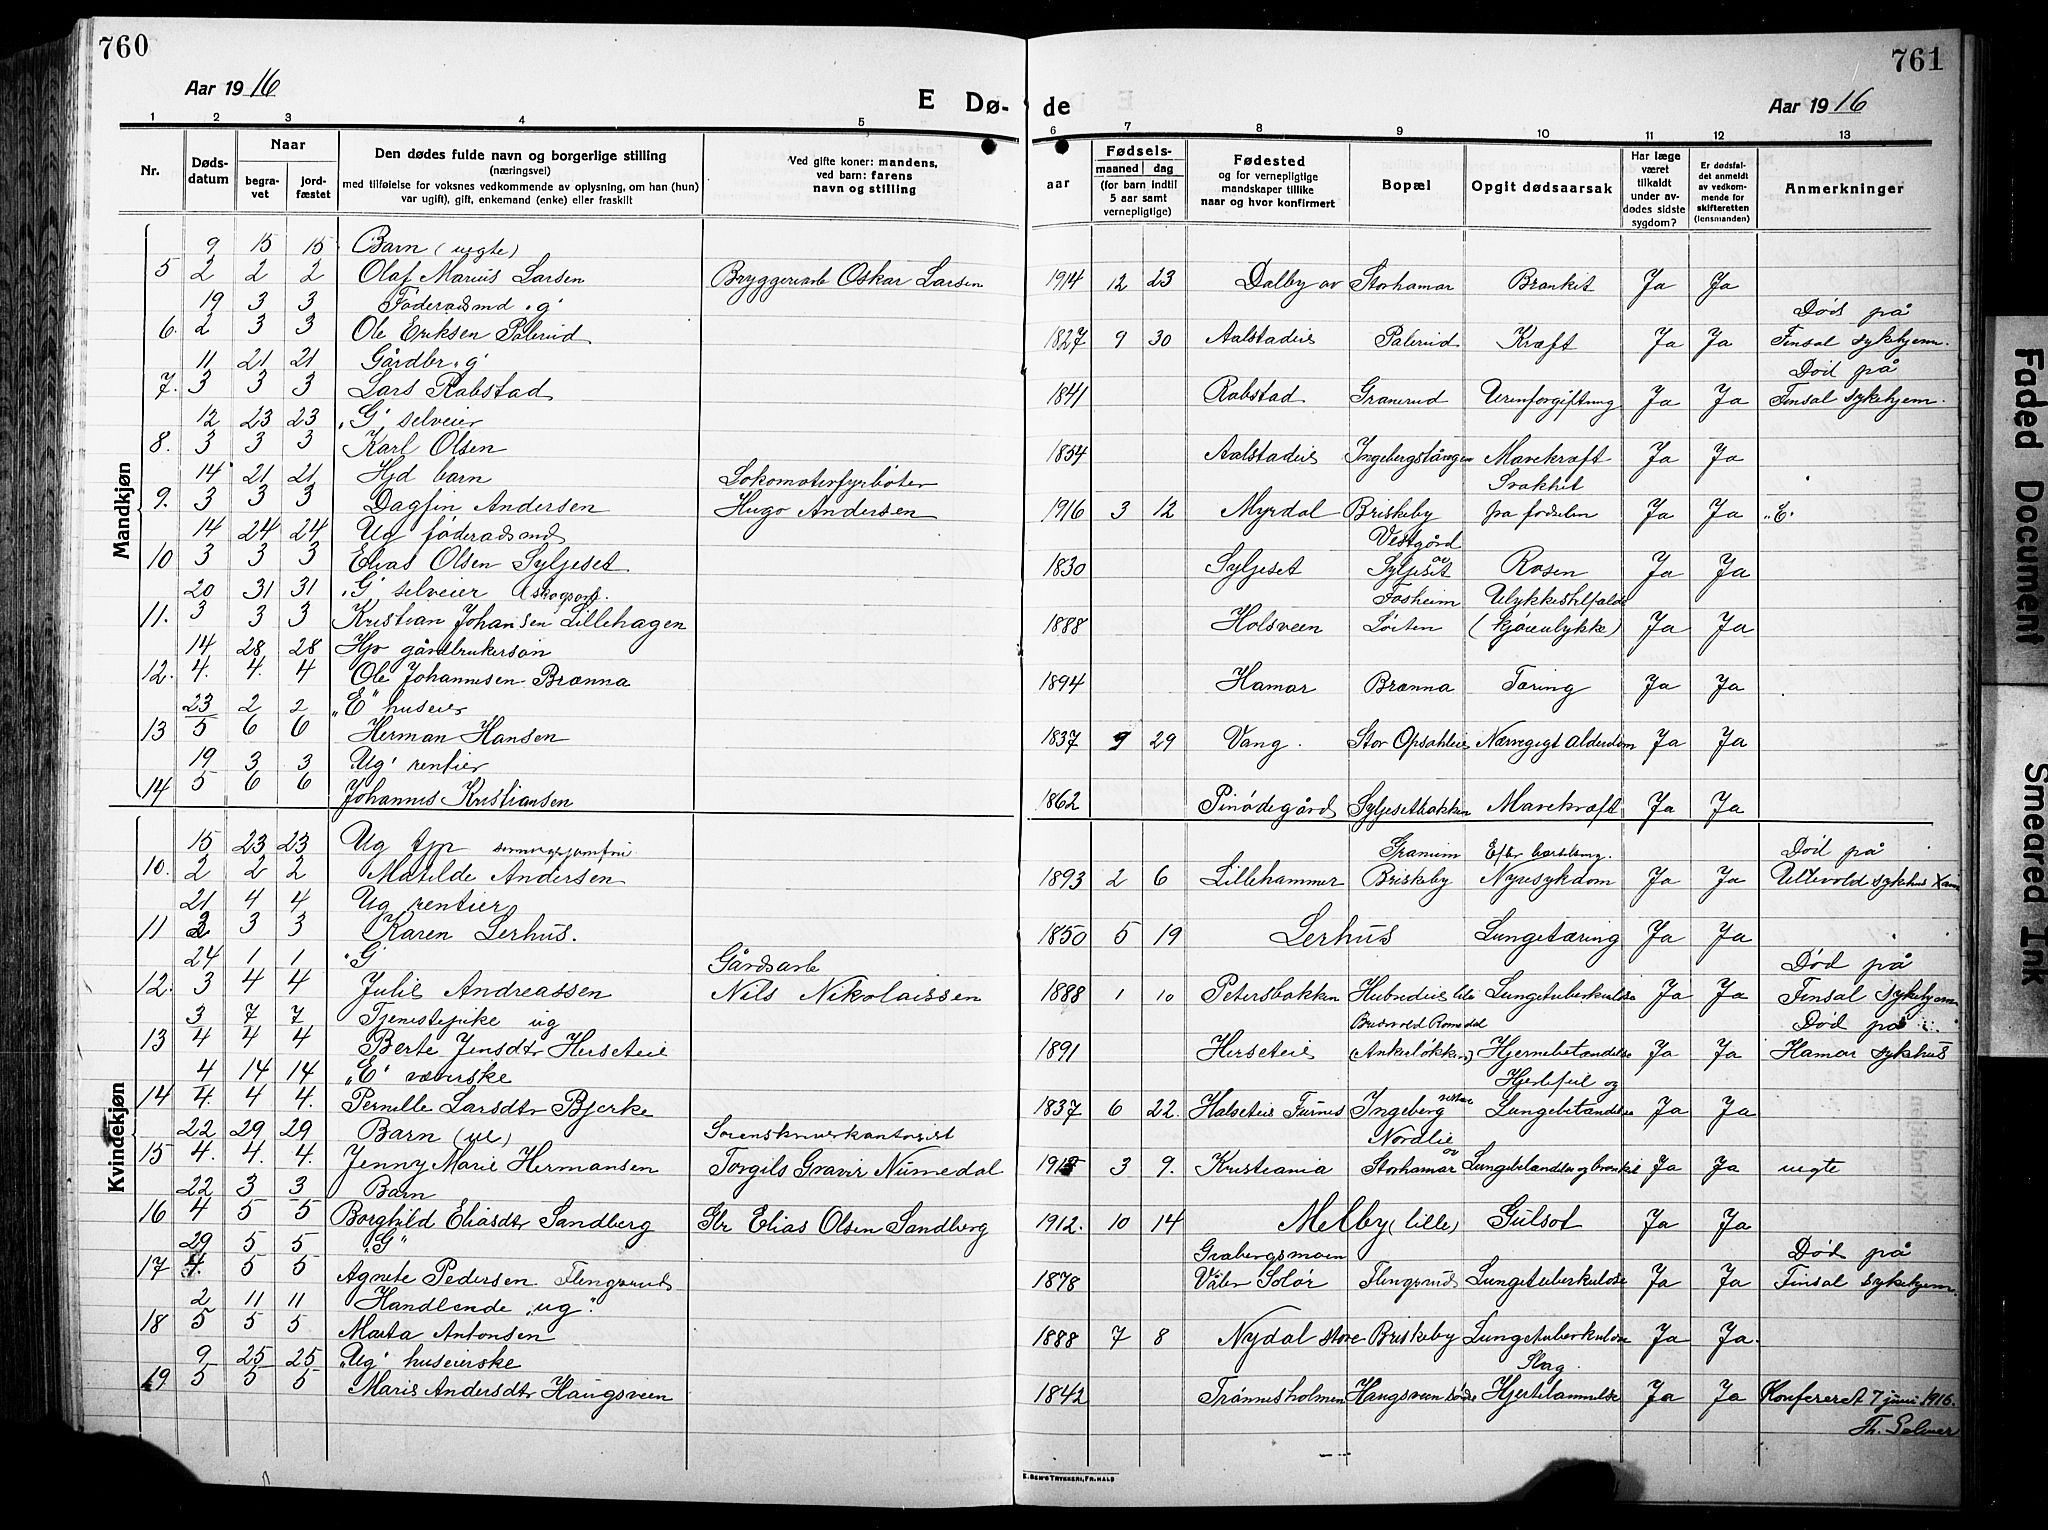 760
761
Aar 1916
E Dø-
de
Aar 1916
1 2 3 4 5 6 7 8 9 10 11 12 13
Nr.
Døds-datum
Naar
begra-vet
jord-fæstet
Den dødes fulde navn og borgerlige stilling
(næringsvei)
med tilføielse for voksnes vedkommende av oplysning, om han (hun)
var ugift), gift, enkemand (enke) eller fraskilt
Ved gifte koner: mandens,
ved barn: farens
navn og stilling
Fødsels-
aar
maaned
dag
(for barn indtil
5 aar samt
vernepligtige)
Fødested
og for vernepligtige
mandskaper tillike
naar og hvor konfirmert
Bopæl
Opgit dødsaarsak
Har læge
været
tilkaldt
under av-
dødes sidste
sygdom?
Er dødsfal-
det anmeldt
av vedkom-
mende for
skifteretten
(lensmanden)
Anmerkninger
Mandkjøn
9 15 15 Barn (uegte)
5 2 2 2 Olaf Marius Larsen Bryggeriarb Oskar Larsen 1914 12 23 Dalby av Storhamar Bronkit Ja Ja
19 3 3 Føderadsmd "g" Død på
6. 2 3 3 Ole Eriksen Palerud 1827 9 30 Aalstadeie Palerud Kræft Ja Ja Finsal sykehjem.
11 21 21 Gårdbr "g" Død på
7. 3 3 3 Lars Rabstad 1841 Rabstad Granerud Urinforgiftning Ja Ja Finsal sykehjem.
12 23 23 "G" selveier
8. 3 3 3 Karl Olsen 1854 Aalstadeie Ingebergstangen Mavekræft Ja Ja
14 21 21 Hjd barn Lokomotivfyrbøter Svakhet
9. 3 3 3 Dagfin Andersen Hugo Andersen 1916 3 12 Myrdal Briskeby fra fødselen Ja Ja "E"
14 24 24 Ug føderadsmd Vestgård
10 3 3 3 Elias Olsen Syljeset 1830 Syljeset av Syljeset Rosen Ja Ja
20 31 31 "G" selveier (skogsarb. Fosheim Ulykkestilfælde
11. 3 3 3 Kristian Johansen Lillehagen 1888 Holsveen Løiten (kjøreulykke) Ja Ja
14 28 28 Hjv gårdbrukersøn
12. 4. 4. 4 Ole Johannesen Brænna 1894 Hamar Brænna Tæring Ja Ja
23 2 2 "E" huseier
13 5 6 6 Herman Hansen 1837 9 29 Vang. Stor Opsahleie Nærvegigt Alderdom Ja Ja
19 3 3 "Ug" rentier
14 5 6 6 Johannes Kristiansen 1862 Pinødegård Syljesetbakken Mavekræft Ja Ja
Kvindekjøn
15 23 23 Ug tjp Granum Efter Død på
10. 2 2 2 Matilde Andersen 1893 2 6 Lillehammer Briskeby Nyresykdom Ja Ja Ullevold sykehus
21 4 4 Ug rentier
11 2 3 3 Karen Lerhus. 1850 5 19 Lerhus Lungetæring Ja Ja
24 1 1 "G" Gårdsarb Død på
12. 3 4 4 Julie Andreassen Nils Nikolaissen 1888 1 10 Petersbakken Hubndeie lile Lungetuberkulose Ja Ja Finsal sykehjem
3 7 7 Tjenestepike ug Romedal Død på
13 4 4 4 Berte Jensdtr Herseteie 1891 Herseteie (Ankerløkken) Hjernebetændelse Ja Ja Hamar sykehus
4 14 14 "E" væverske Hjertefeil og
14 4. 4 4. Pernille Larsdtr Bjerke 1837 6 22. Halseteie Furnes Ingeberg vestre Lungebetændelse Ja Ja
22 29 29 Barn (ue) Sorenskriverkontorist Nordlie
15 4. 4. 4. Jenny Marie Hermansen Torgils Gravir Numedal 1915 3 9. Kristiania av Storhamar Lungebetændelse og bronkit Ja Ja uegte
22 3 3 Barn
16 4 5 5 Borghild Eliasdtr Sandberg Gbr Elias Olsen Sandberg 1912. 10 14 Melby (lille) Gulsot Ja Ja
29 5 5 "G" Grabergsmoen Død på
17 4. 5 5 Agnete Pedersen Flengsrud 1878 Våler Solør Flengsrud Lungetuberkulose Ja Ja Finsal sykehjem.
2 11 11 Handlende "ug".
18 5 5 5 Marta Antonsen 1888 7 8 Nydal store Briskeby Lungetuberkulose Ja Ja.
9 25 25 "Ug" huseierske Slag.
19 5 5 5 Marie Andersdtr Haugsveen 1842 Trønnesholmen Haugsveen søndre Hjertelammelse Ja Ja Konfereret 7 juni 1916.
Th. Selmer
E. SEM'S TRYKKERI, FR.HALD
Faded Document
Smeared Ink